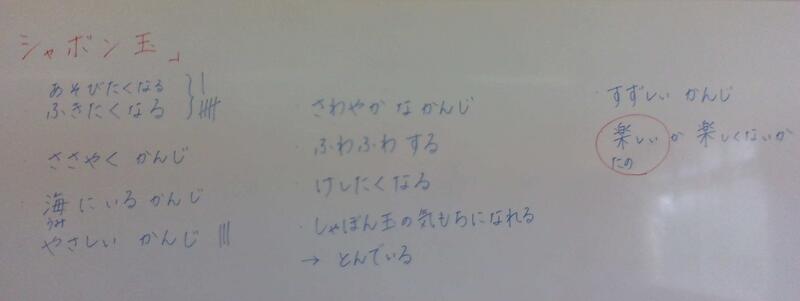 シャボン玉」
あそびたくなる
ふきたくなる
ささやくかんじ
海にいるかんじ
うみ
やさしい かんじ
・さわやかなかんじ
・ふわふわする
・けしたくなる
・しゃぼん玉の気もちになれる
→ とんでいる
・すずしい かんじ
楽しいか 楽しくないか
たの